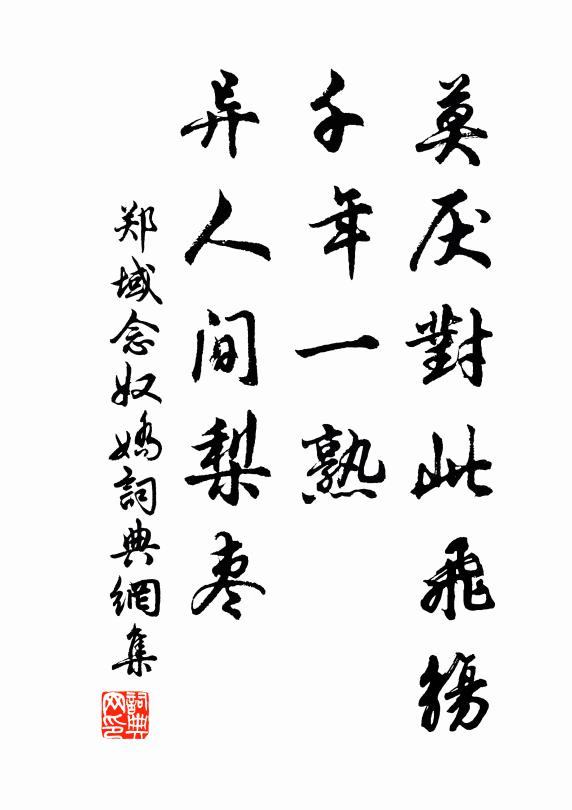 莫厌對此飛觴
千年一熟
异人间梨枣
郑域念奴嬌詞典網集
詞典网印